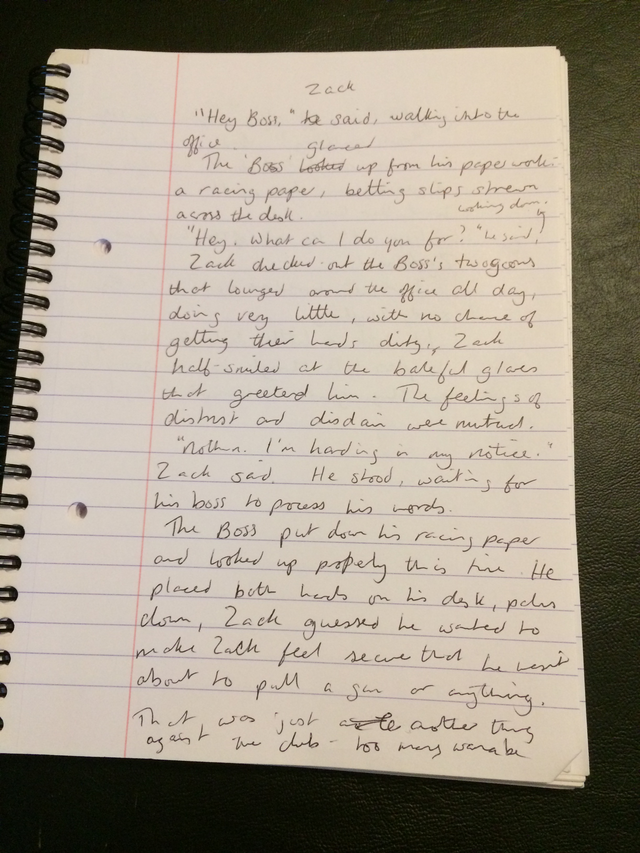 Zack
"Hey Boss," he said, walking into the
office.
glanced
The 'Boss' looked up from his paper work -
a racing paper, betting slips strewn
across the desk.
looking down.
"Hey. What can I do you for?" he said,
Zack checked out the Boss's two goons
that lounged around the office all day,
doing very little, with no chance of
getting their hands dirty. Zack
half-smiled at the baleful glares
that greeted him. The feelings of
distrust and disdain were mutual.
"Nothin. I'm handing in my notice."
Zack said. He stood, waiting for
his boss to process his words.
The Boss put down his racing paper
and looked up properly this time. He
placed both hands on his desk, palms
down, Zack guessed he wanted to
make Zack feel secure that he wasn't
about to pull a gun or anything.
That, was just another thing
against the club - too many wanabe